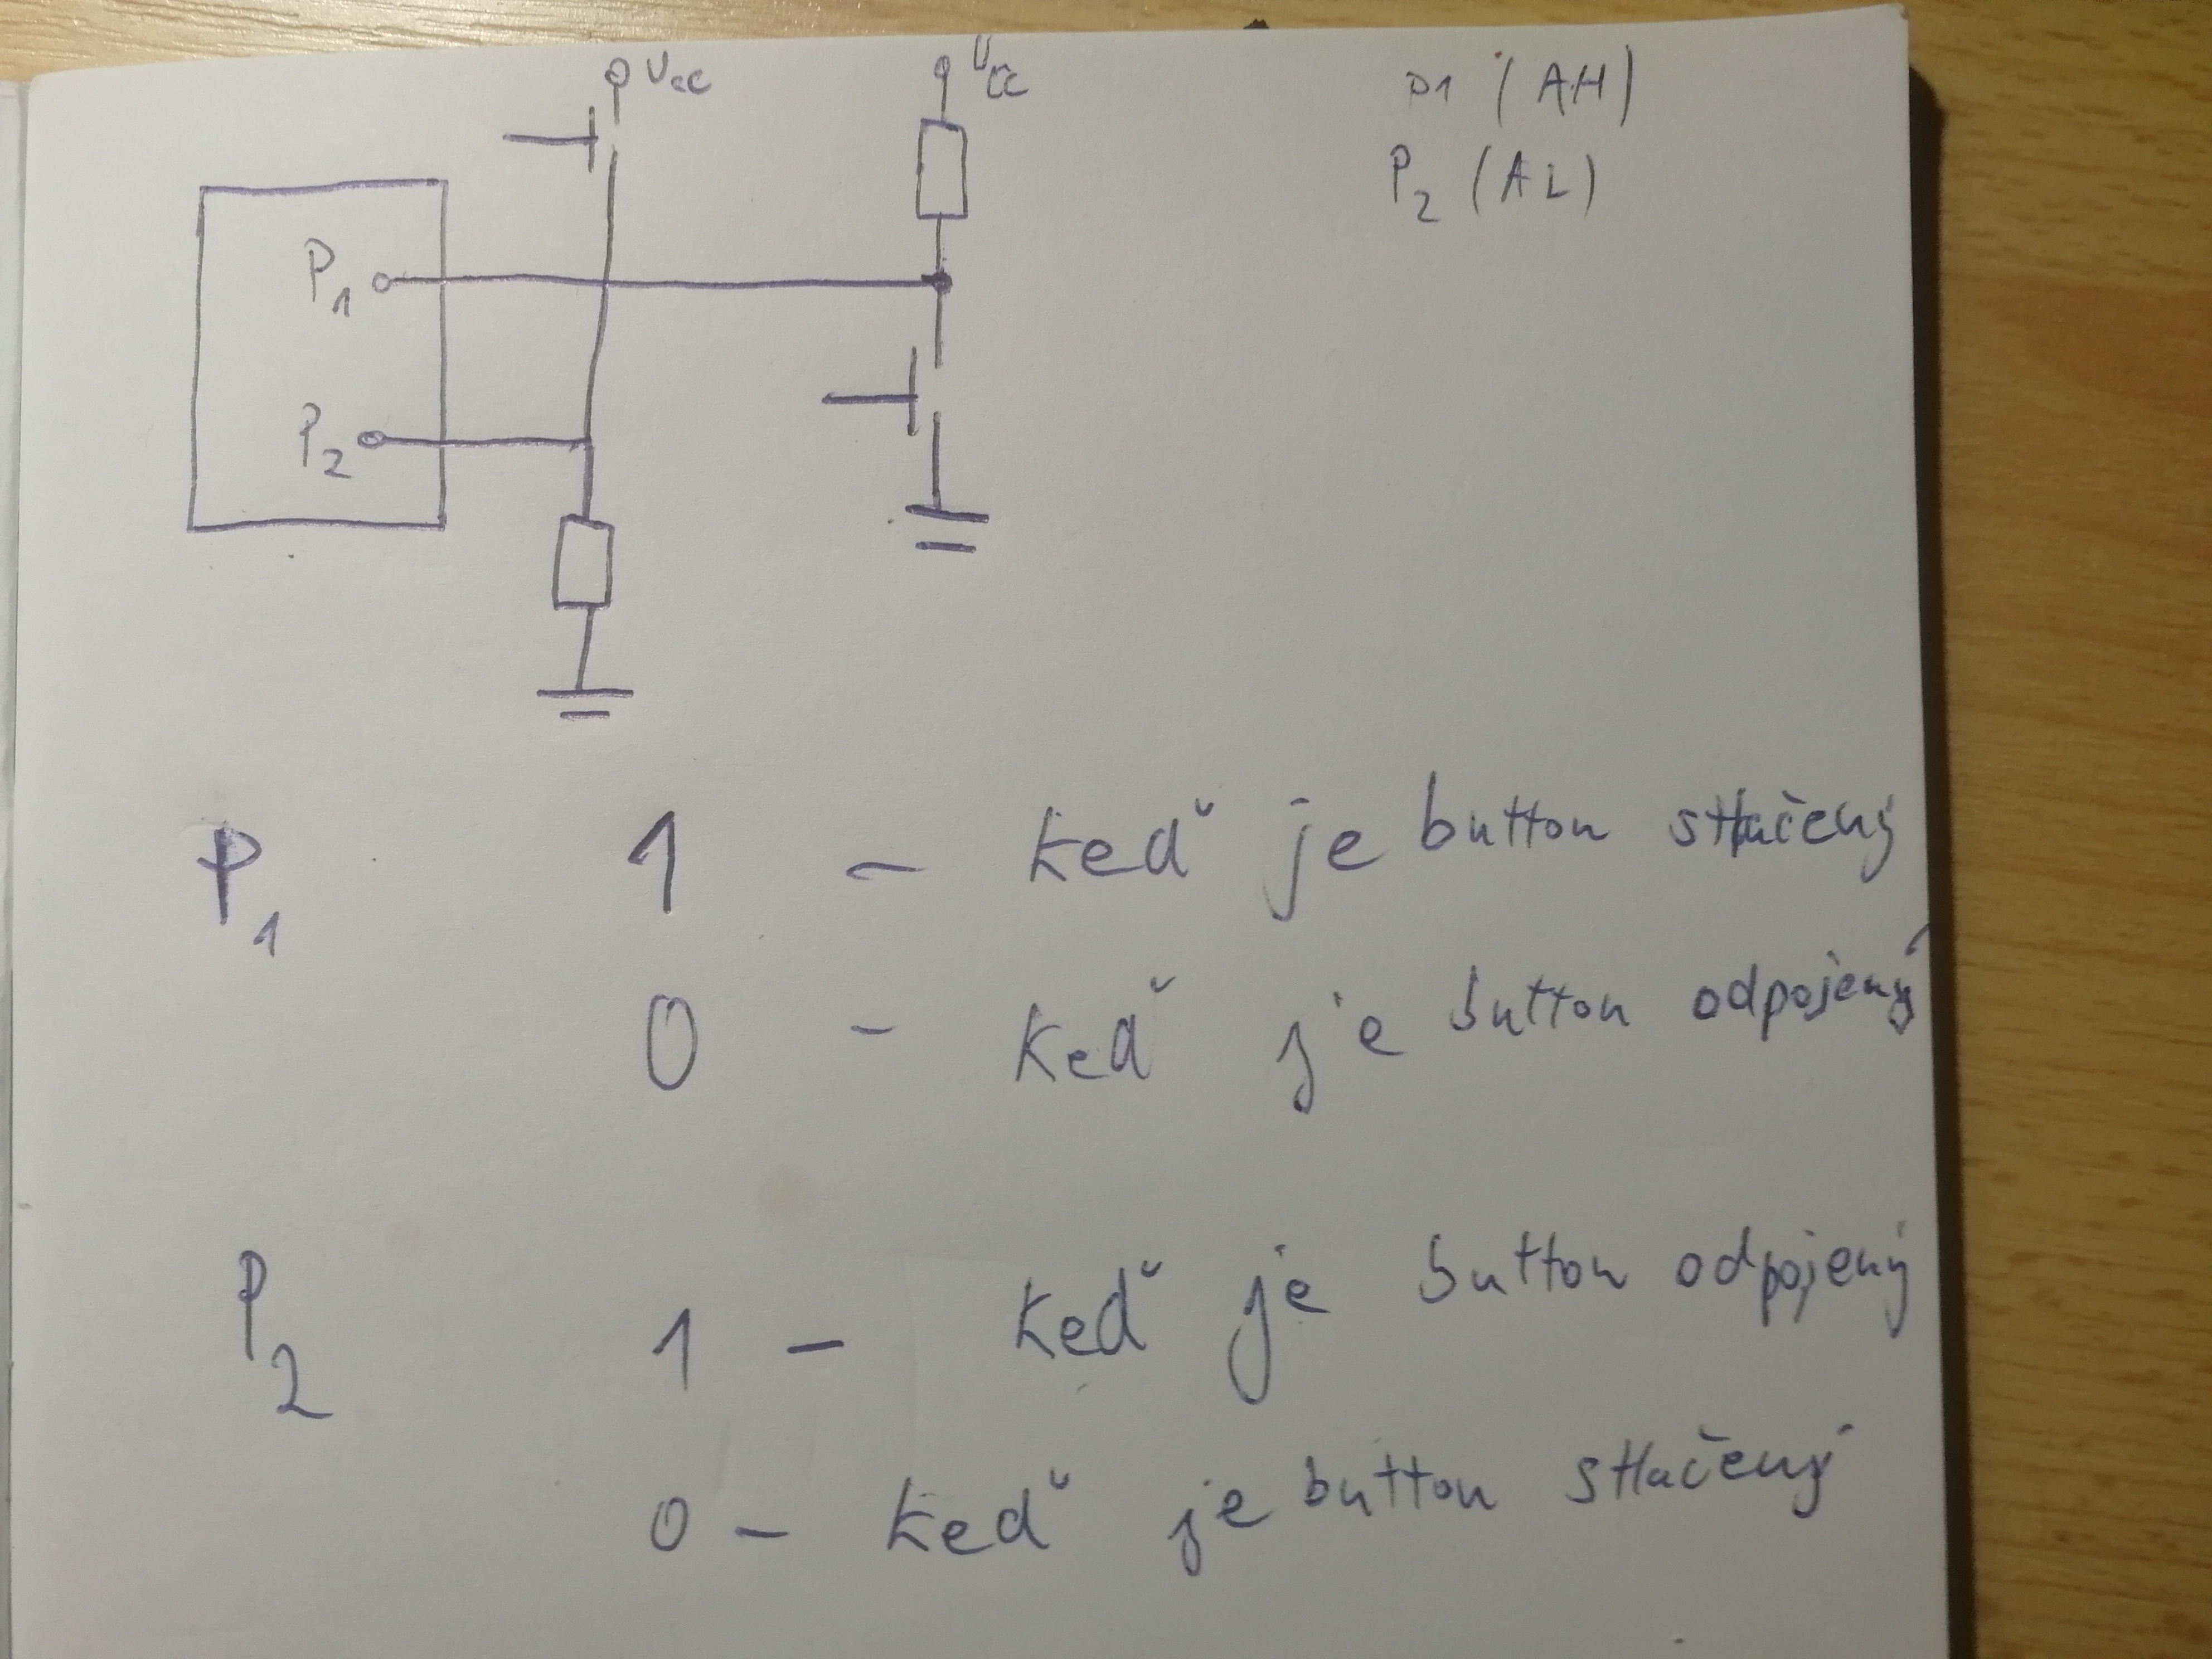 Ucc
Ucc
P1 (AH)
P2 (AL)
P1
P2
P1 1 – keď je button stlačený
0 – keď je button odpojený
P2 1 – keď je button odpojený
0 – keď je button stlačený